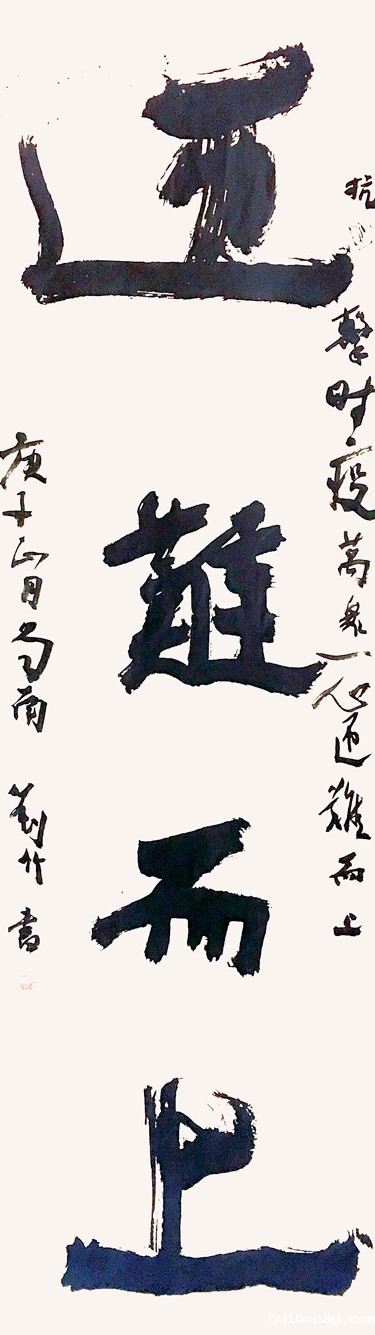 抗擊时疫萬衆一心迎難而上
迎難而上
庚子正月马南
劉竹書
huibopay.com